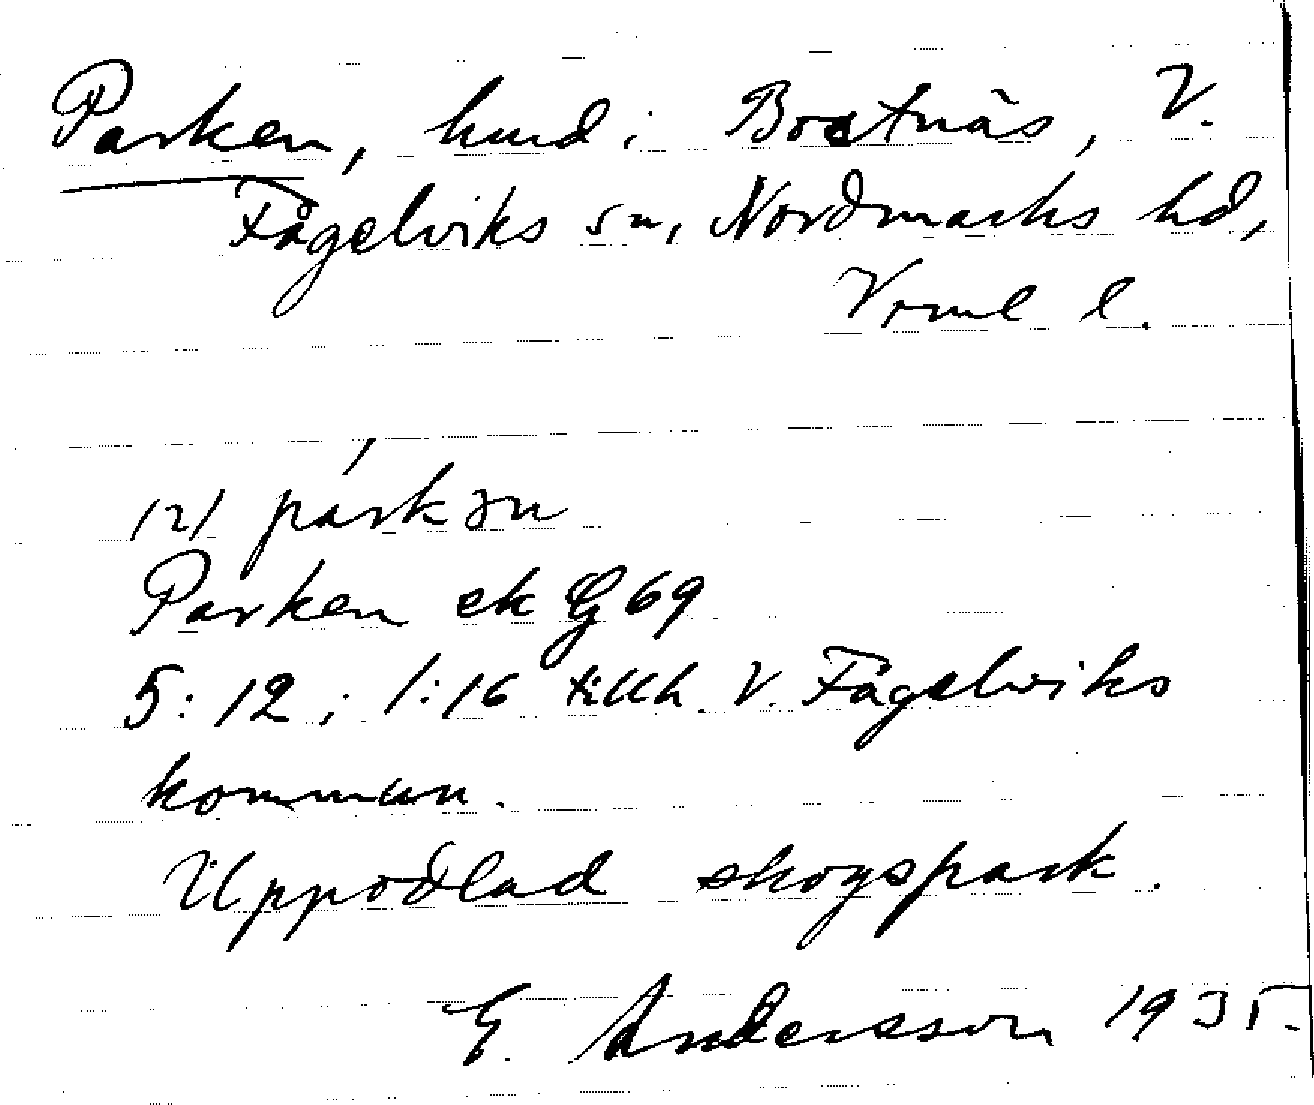 Parken, hmd i Bostnäs, V.
Fågelviks sn, Nordmarks hd,
Vrml l.
/2/ párkən
Parken ek G 69
5:12; 1:16 tillh. V. Fågelviks
kommun.
Uppodlad skogspark.
E. Andersson 1935.